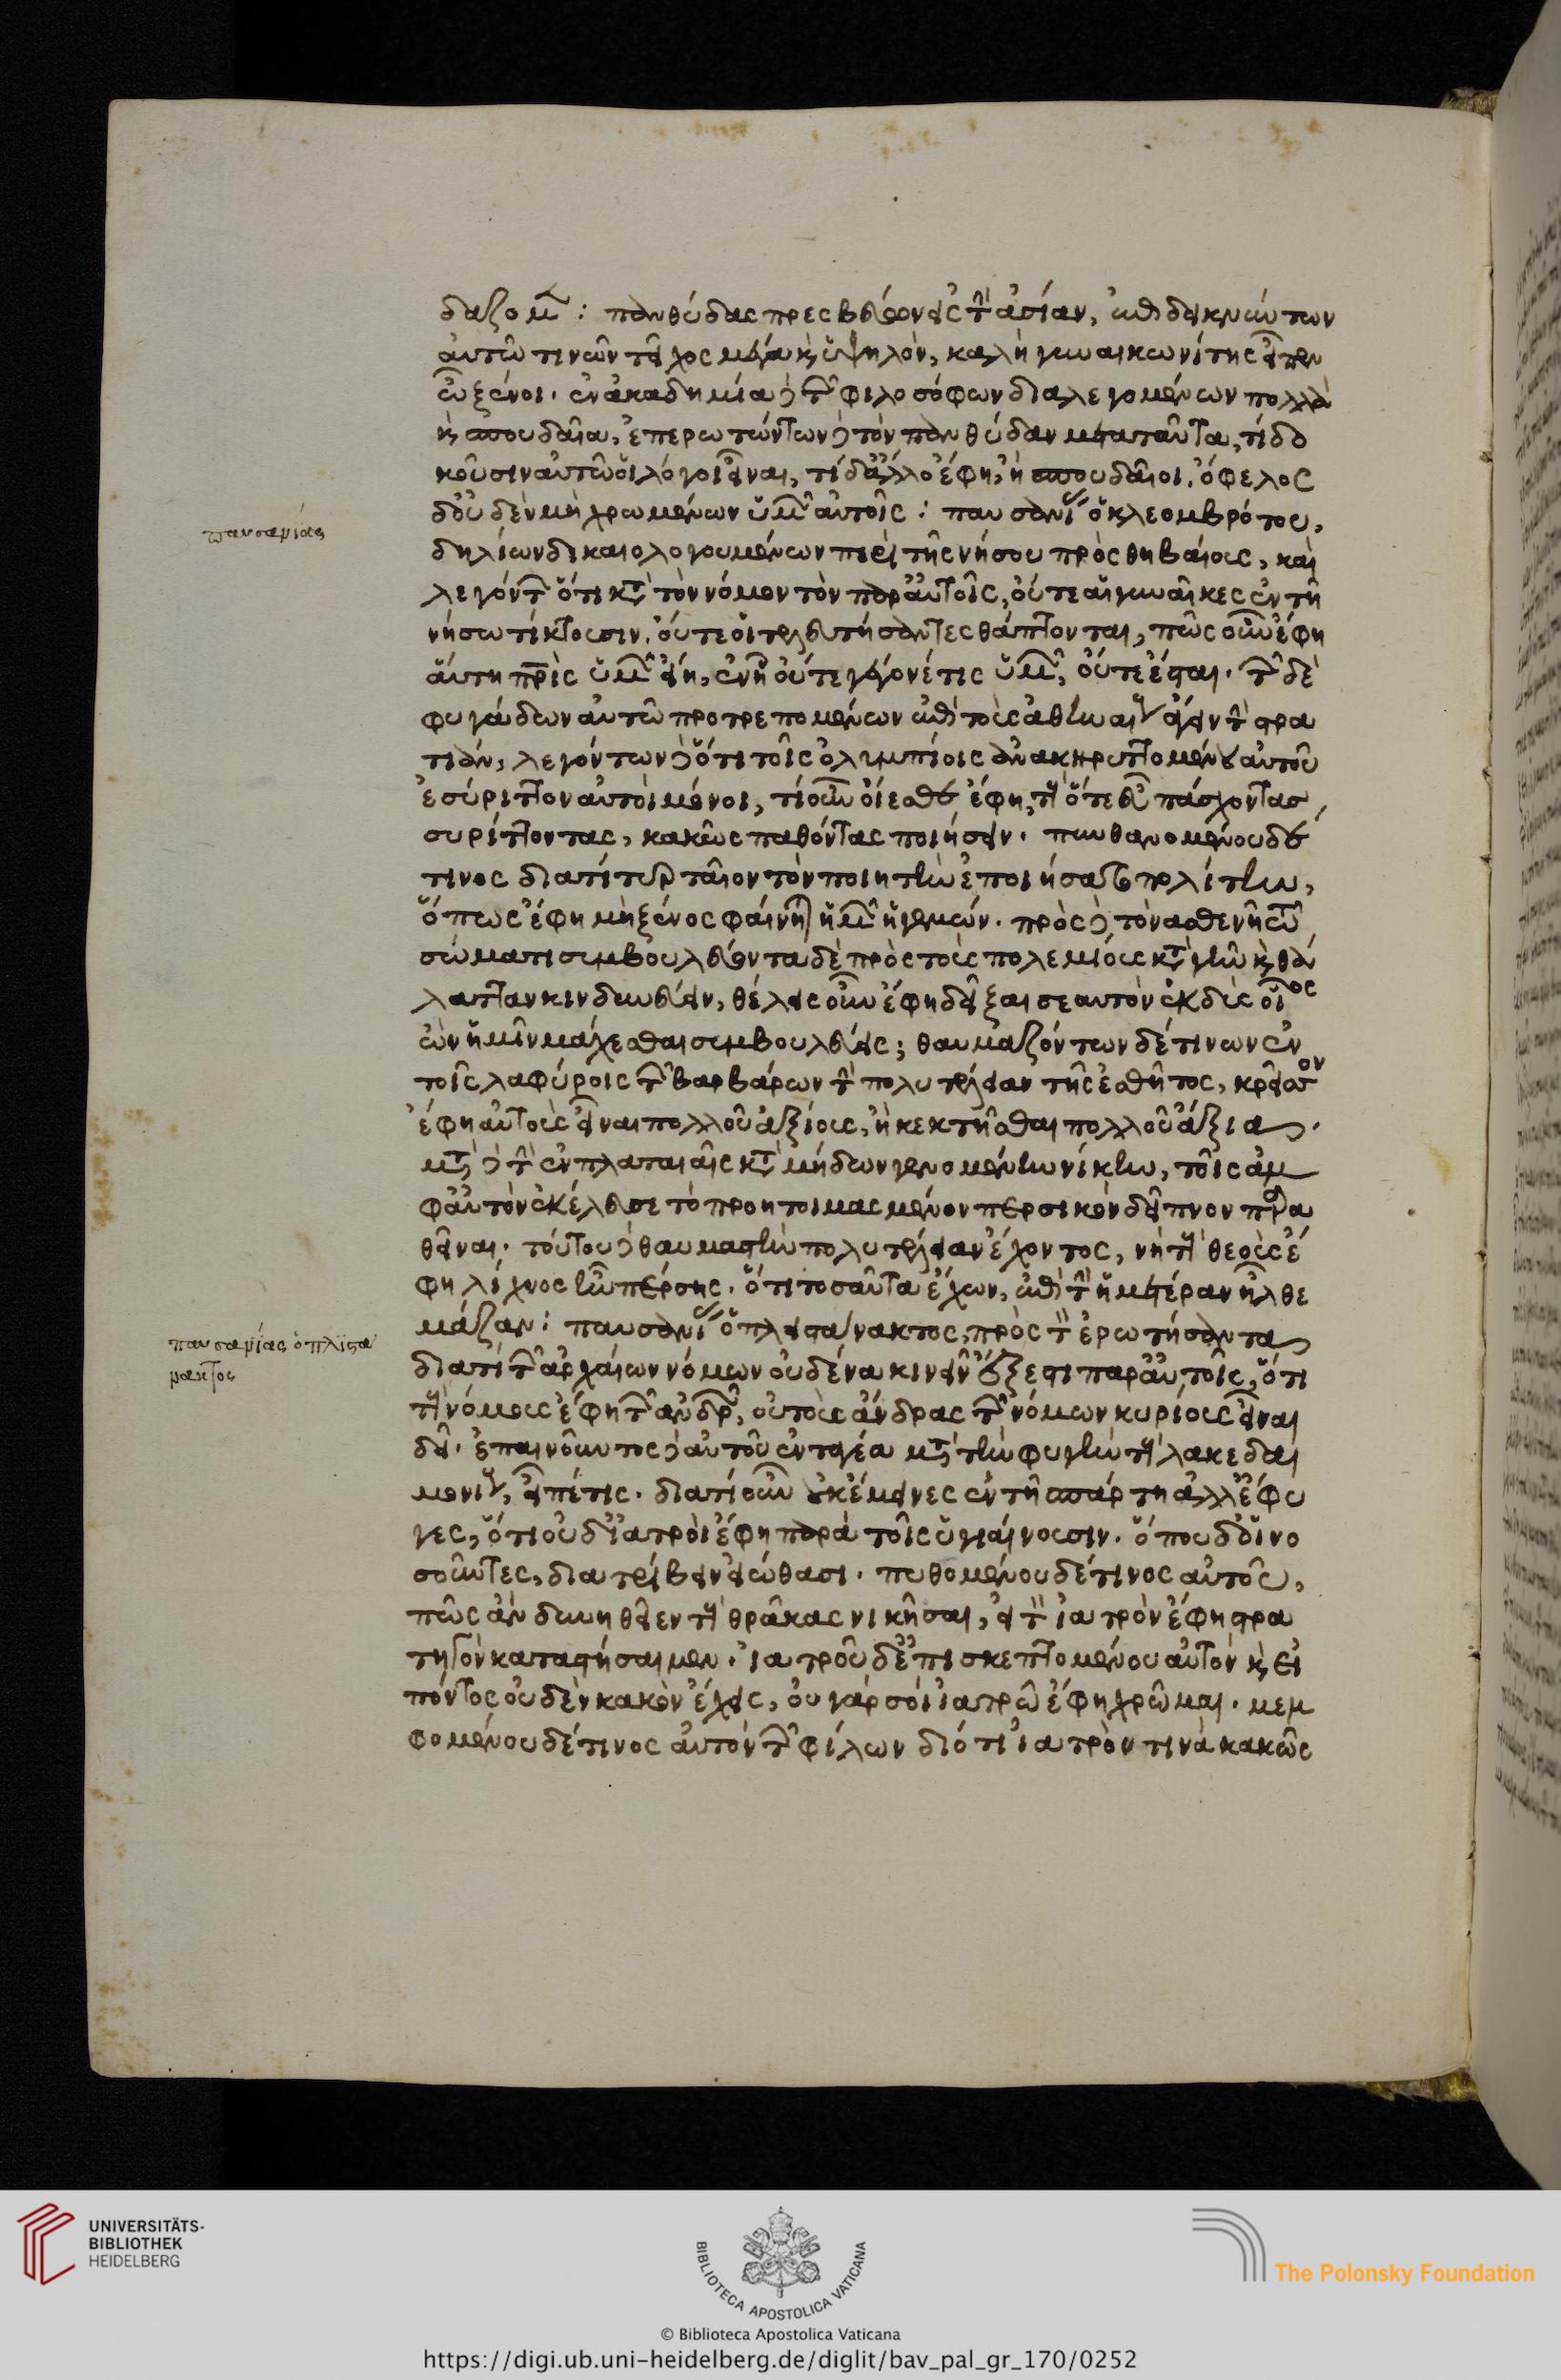 δαζομαι: πανθύδας πρεσβεύων εἰς τὴν ἀσίαν, ἐπιδεικνύντων
αὐτῶ τινῶν τεῖχος μέγα καὶ ὑψηλὸν, καλὴ γυναικωνίτης εἶπεν
ὦ ξένοι. ἐν ἀκαδημία δὲ τῶν φιλοσόφων διαλεγομένων πολλὰ
καὶ σπουδαῖα, ἐπερωτώντων δὲ τὸν πανθύδαν μετα ταῦτα, τί δο
κοῦσιν αὐτῶ οἱ λόγοι εἶναι, τί δ' ἄλλο ἔφη, ἢ σπουδαῖοι, ὄφελος
δ' οὐδὲν μὴ χρωμένων ὑμῶν αὐτοῖς: παυσανίας ὁ κλεομβρότου,
παυσανίας
δηλίων δικαιολογουμένων περὶ τῆς νήσου πρὸς θηβαίους, καὶ
λεγόντων ὅτι κατὰ τὸν νόμον τὸν παρ' αὐτοῖς, οὔτε αἱ γυναῖκες ἐν τῆ
νήσω τίκτουσιν, οὔτε οἱ τελευτήσαντες θάπτονται, πῶς οὖν ἔφη
αὕτη πατρὶς ὑμῶν εἴη, ἐν ἧ οὔτε γέγονέ τις ὑμῶν, οὔτε ἔσται. τῶν δὲ
φυγάδων αὐτῶ προτρεπομένων ἐπὶ τοὺς ἀθηναίους ἄγειν τὴν στρα
τιὰν, λεγόντων δὲ ὅτι τοῖς ὀλυμπίοις ἀνακηρυττομένου αὐτοῦ
ἐσύριττον αὐτὸι μόνοι, τί οὖν οἴεσθε ἔφη, τοὺς ὅτε εὖ πάσχοντας
συρίττοντας, κακῶς παθόντας ποιήσειν. πυνθανομένου δέ
τινος διατί τυρταῖον τὸν ποιητὴν ἐποιήσαντο πολίτην,
ὅπως ἔφη μὴ ξένος φαίνηται ἡμῶν ἡγεμών. πρὸς δὲ τὸν ἀσθενῆ τῶ
σώματι συμβουλεύοντα δὲ πρὸς τοὺς πολεμίους κατὰ γῆν καὶ θά
λατταν κινδυνεύειν, θέλεις οὖν ἔφη δεῖξαι σεαυτὸν ἐκδὺς οἷος
ὢν ἡμῖν μάχεσθαι συμβουλεύεις; θαυμαζόντων δέ τινων ἐν
τοῖς λαφύροις τῶν βαρβάρων τὴν πολυτέλειαν τῆς ἐσθῆτος, κρεῖσσον
ἔφη αὐτοὺς εἶναι πολλοῦ ἀξίους, ἢ κεκτῆσθαι πολλοῦ ἄξια.
μετὰ δὲ τὴν ἐν πλαταιαῖς κατὰ μήδων γενομένην νίκην, τοῖς ἀμ
φ' αὐτὸν ἐκέλευσε τὸ προητοιμασμένον περσικὸν δεῖπνον παρα
θεῖναι. τούτου δὲ θαυμαστὴν πολυτέλειαν ἔχοντος, νὴ τοὺς θεοὺς ἔ
φη λίχνος ἦν πέρσης, ὅτι τοσαῦτα ἔχων, ἐπὶ τὴν ἡμετέραν ἦλθε
μάζαν: παυσανίας ὁ πλειστάνακτος, πρὸς τὸν ἐρωτήσαντα
παυσανίας ὁ πλιστα
νακτος
διατί τῶν ἀρχαίων νόμων οὐδένα κινεῖν ἔξεστι παρ' αὐτοῖς, ὅτι
τοὺς νόμους ἔφη τῶν ἀνδρῶν, οὐ τοὺς ἄνδρας τῶν νόμων κυρίους εἶναι
δεῖ. ἐπαινοῦντος δὲ αὐτοῦ ἐν τεγέα μετὰ τὴν φυγὴν τοὺς λακεδαι
μονίους, εἶπέ τις. διατί οὖν οὐκ ἔμεινες ἐν τῆ σπάρτη ἀλλ' ἔφυ
γες, ὅτι οὐδ' ἰατροὶ ἔφη παρὰ τοῖς ὑγιαίνουσιν. ὅπου δ' οἱ νο
σοῦντες, διατρίβειν εἰώθασι. πυθομένου δέ τινος αὐτοῦ,
πῶς ἂν δυνηθεῖεν τοὺς θρᾶκας νικῆσαι, εἰ τὸν ἰατρὸν ἔφη στρα
τηγὸν καταστήσαιμεν. ἰατροῦ δ' ἐπισκεπτομένου αὐτὸν καὶ εἰ
πόντος οὐδὲν κακὸν ἔχεις, οὐ γάρ σόι ἰατρῶ ἔφη χρῶμαι. μεμ
φομένου δέ τινος αὐτὸν τῶν φίλων διότι ἰατρὸν τινὰ κακῶς
UNIVERSITÄTS-
BIBLIOTHEK
HEIDELBERG
BIBLIOTECA APOSTOLICA VATICANA
The Polonsky Foundation
© Biblioteca Apostolica Vaticana
https://digi.ub.uni-heidelberg.de/diglit/bav_pal_gr_170/0252